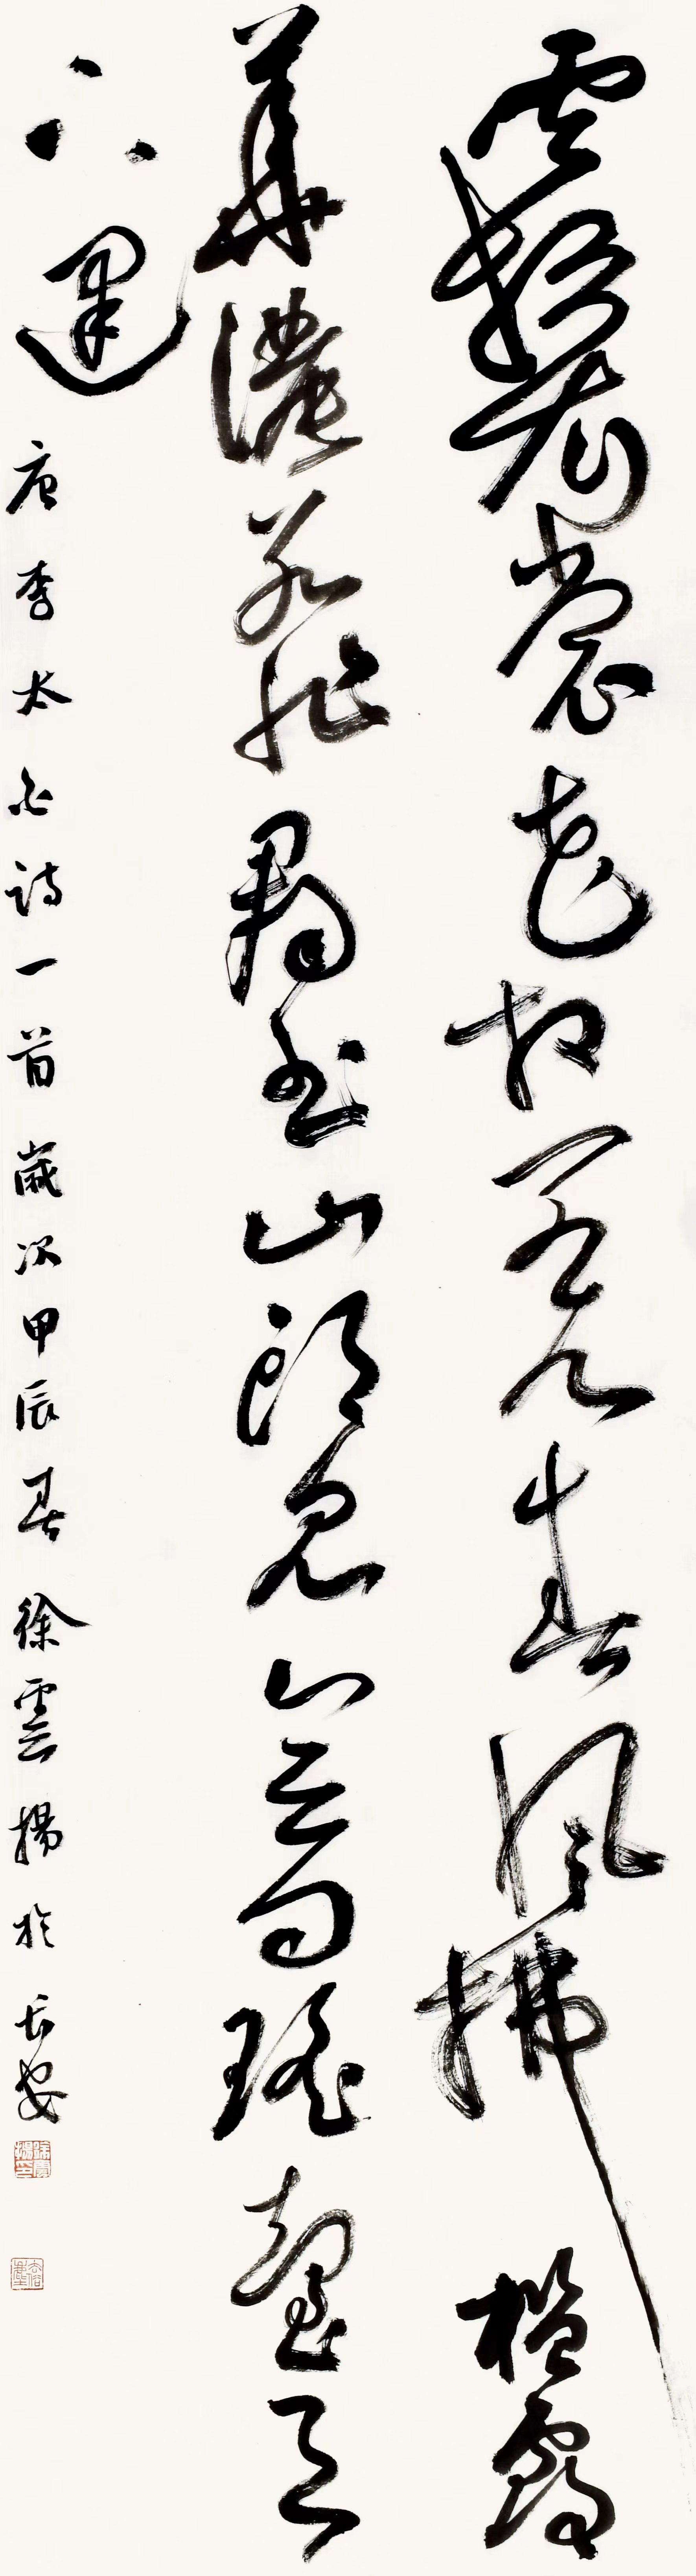 雲想衣裳花想容春風拂檻露
華濃若非群玉山頭見會向瑤臺月
下逢 唐李太白詩一首歲次甲辰春徐雲揚於長安
徐雲揚印